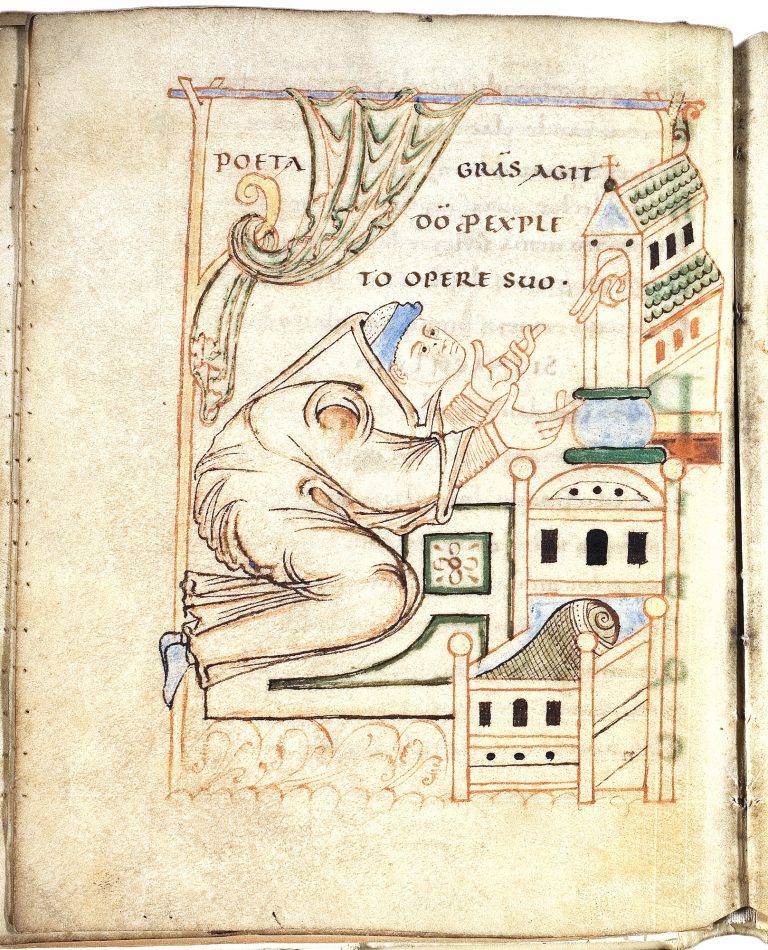 POETA GRĀS AGIT
D̄Ō P EXPLE
TO OPERE SUO·